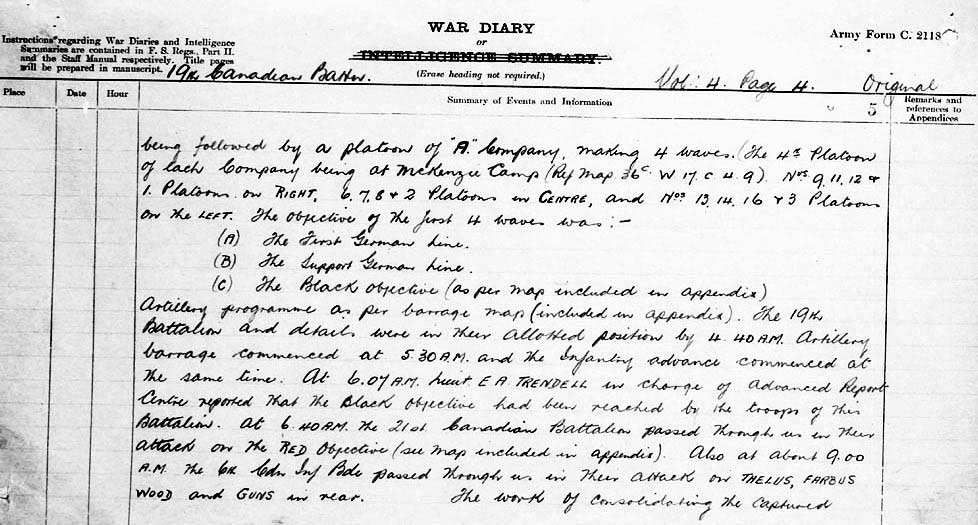 WAR DIARY
or
INTELLIGENCE SUMMARY.
(Erase heading not required.)
Army Form C. 2118
Instructions regarding War Diaries and Intelligence
Summaries are contained in F. S. Regs., Part II.
and the Staff Manual respectively. Title pages
will be prepared in manuscript.
19th Canadian Battn.
Vol: 4. Page 4. Original
Place
Date
Hour
Summary of Events and Information
5
Remarks and
references to
Appendices
being followed by a platoon of "A" Company, making 4 waves. (The 4th Platoon
of each Company being at McKenzie Camp (Ref Map 36c. W 17. C 4. 9). Nos. 9, 11, 12 &
1. Platoons on RIGHT, 6, 7, 8 & 2 Platoons in CENTRE, and Nos 13, 14, 16 & 3 Platoons
on the LEFT. The objective of the first 4 waves was:-
(A) The First German Line.
(B) The Support German Line.
(C) The Black Objective (as per map included in appendix)
Artillery programme as per barrage map (included in appendix). The 19th
Battalion and details were in their allotted position by 4.40 AM. Artillery
barrage commenced at 5.30 A.M. and the Infantry advance commenced at
the same time. At 6.07 A.M. Lieut E A. TRENDELL in charge of Advanced Report
Centre reported that the Black Objective had been reached by the troops of this
Battalion. At 6.40 AM. the 21st Canadian Battalion passed through us in their
attack on the RED Objective (see map included in appendix). Also at about 9.00
A.M. the 6th Cdn Inf Bde passed through us in their attack on THELUS, FARBUS
WOOD and GUNS in rear. The work of consolidating the captured